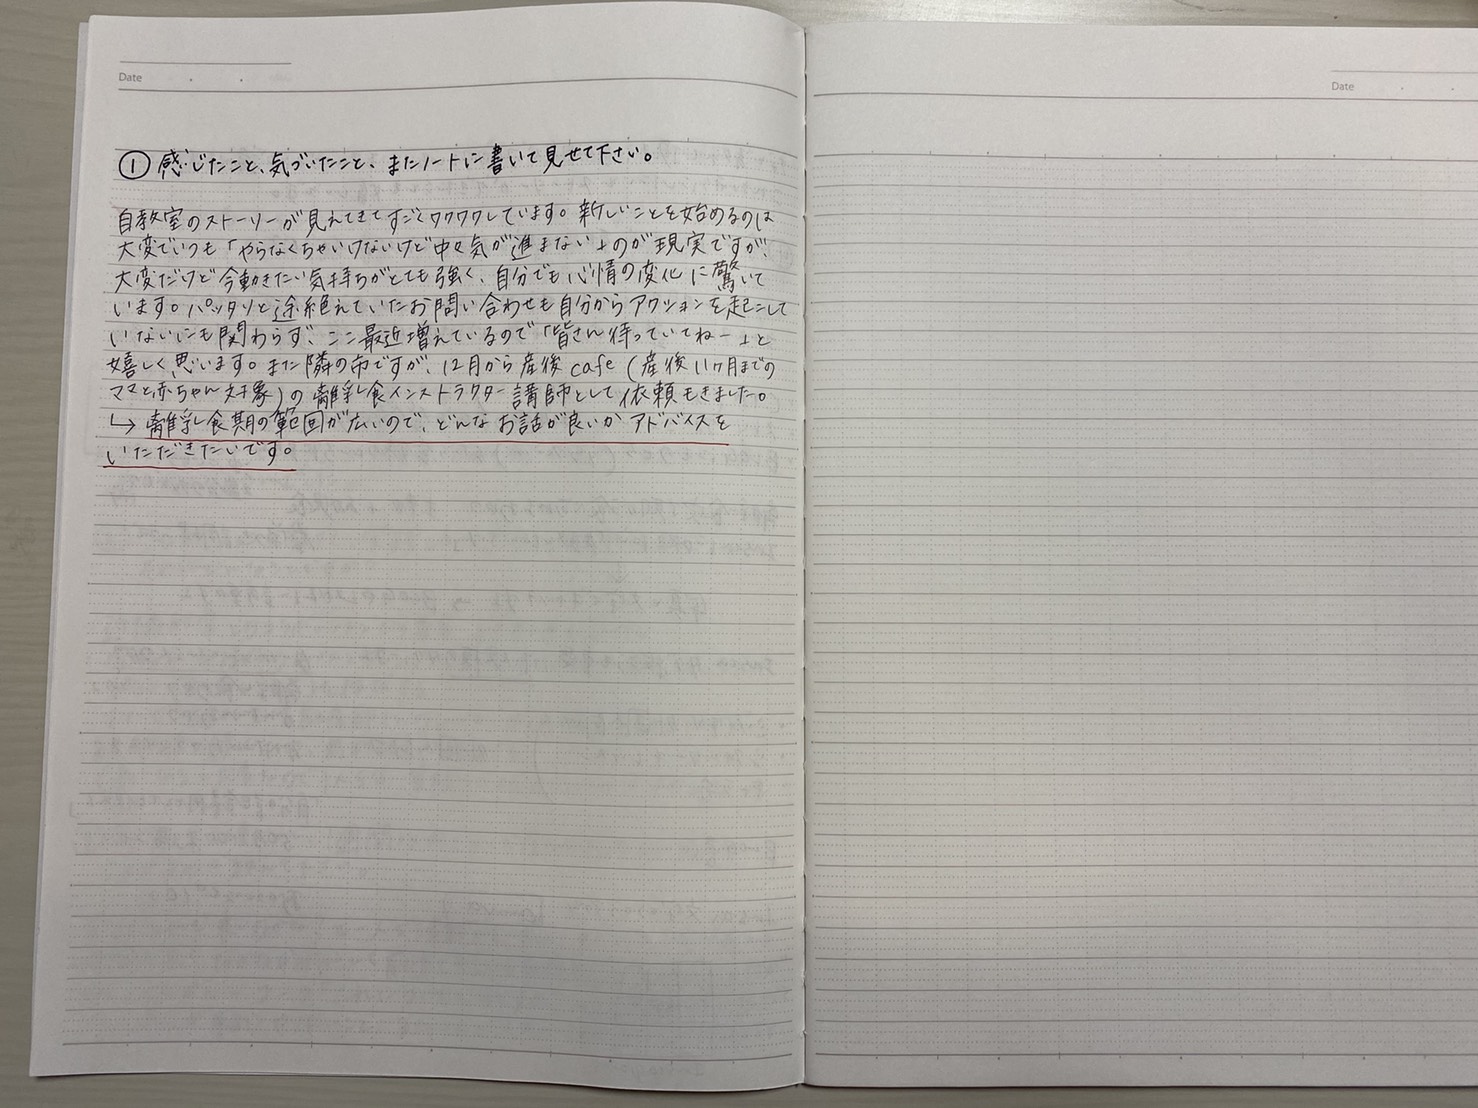 Date
Date
① 感じたこと、気づいたこと、またノートに書いて見せて下さい。
自教室のストーリーが見えてきてすごくワクワクしています。新しいことを始めるのは
大変でいつも「やらなくちゃいけないけど中々気が進まない」のが現実ですが、
大変だけど今動きたい気持ちがとても強く、自分でも心情の変化に驚いて
います。パッタリと途絶えていたお問い合わせも自分からアクションを起こして
いないにも関わらず、ここ最近増えているので「皆さん待っていてねー」と
嬉しく思います。また隣の市ですが、12月から産後cafe(産後11ヶ月までの
ママと赤ちゃん対象)の離乳食インストラクター講師として依頼もきました。
↳ 離乳食期の範囲が広いので、どんなお話が良いかアドバイスを
いただきたいです。